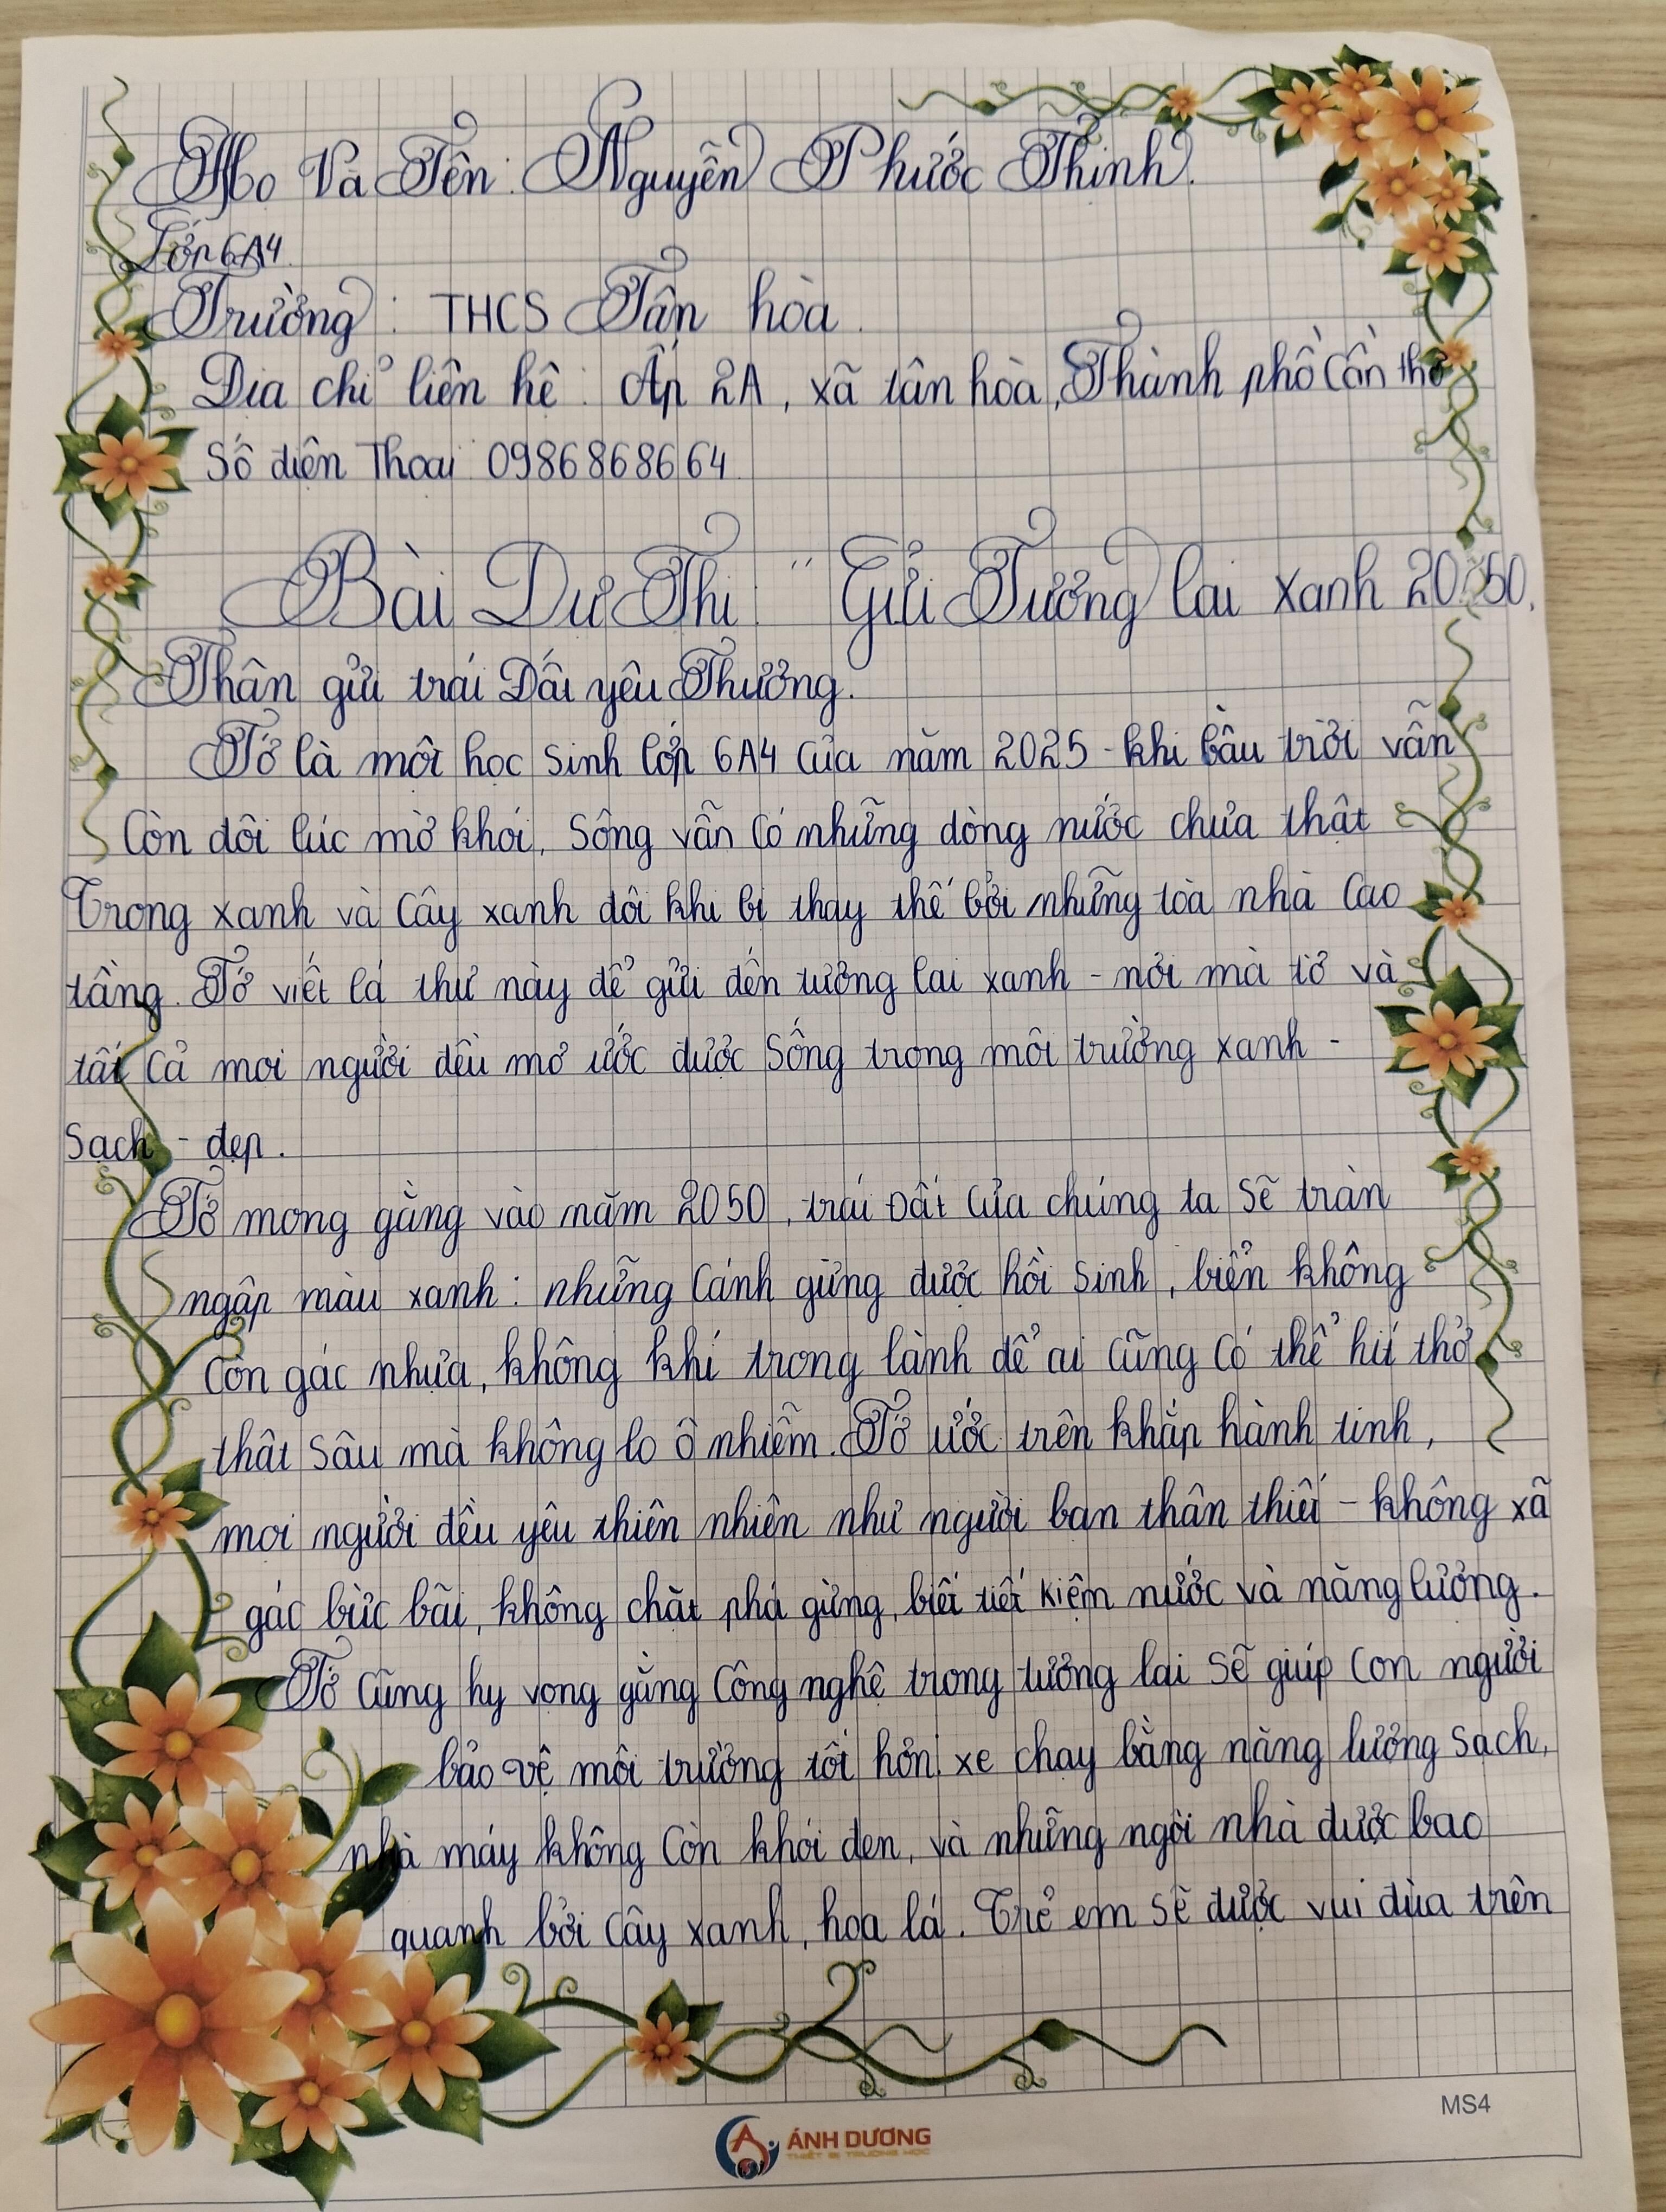 Họ Và Tên: Nguyễn Phước Thịnh.
Lớp 6A4
Trường: THCS Tân hòa.
Địa chỉ liên hệ: Ấp 2A, xã tân hòa, Thành phồ Cần thơ
Số điện Thoại 0986868664
Bài Dự Thi "Gửi Tương lai xanh 2050.
Thân gửi trái Đất yêu Thương.
Tớ là một học sinh lớp 6A4 của năm 2025 - khi bầu trời vẫn
còn đôi lúc mờ khói, sông vẫn có những dòng nước chưa thật
Trong xanh và cây xanh đôi khi bị thay thế bởi những tòa nhà cao
tầng. Tớ viết lá thư này để gửi đến tương lai xanh - nơi mà tớ và
tất cả mọi người đều mơ ước được sống trong môi trường xanh -
sạch - đẹp.
Tớ mong gằng vào năm 2050, trái Đất của chúng ta sẽ tràn
ngập màu xanh: những cánh gừng được hồi sinh, biển không
còn gác nhựa, không khí trong lành để ai cũng có thể hít thở
thật sâu mà không lo ô nhiễm. Tớ ước trên khắp hành tinh,
mọi người đều yêu thiên nhiên như người bạn thân thiết - không xã
gác bừc bãi, không chặt phá gừng, biết tiết kiệm nước và năng lượng.
Tớ cũng hy vọng gằng công nghệ trong tương lai sẽ giúp con người
bảo vệ môi trường tốt hơn: xe chạy bằng năng lượng sạch,
nhà máy không còn khói đen, và những ngôi nhà được bao
quanh bởi cây xanh, hoa lá. Trẻ em sẽ được vui đùa trên
MS4
ÁNH DƯƠNG
THIẾT BỊ TRƯỜNG HỌC